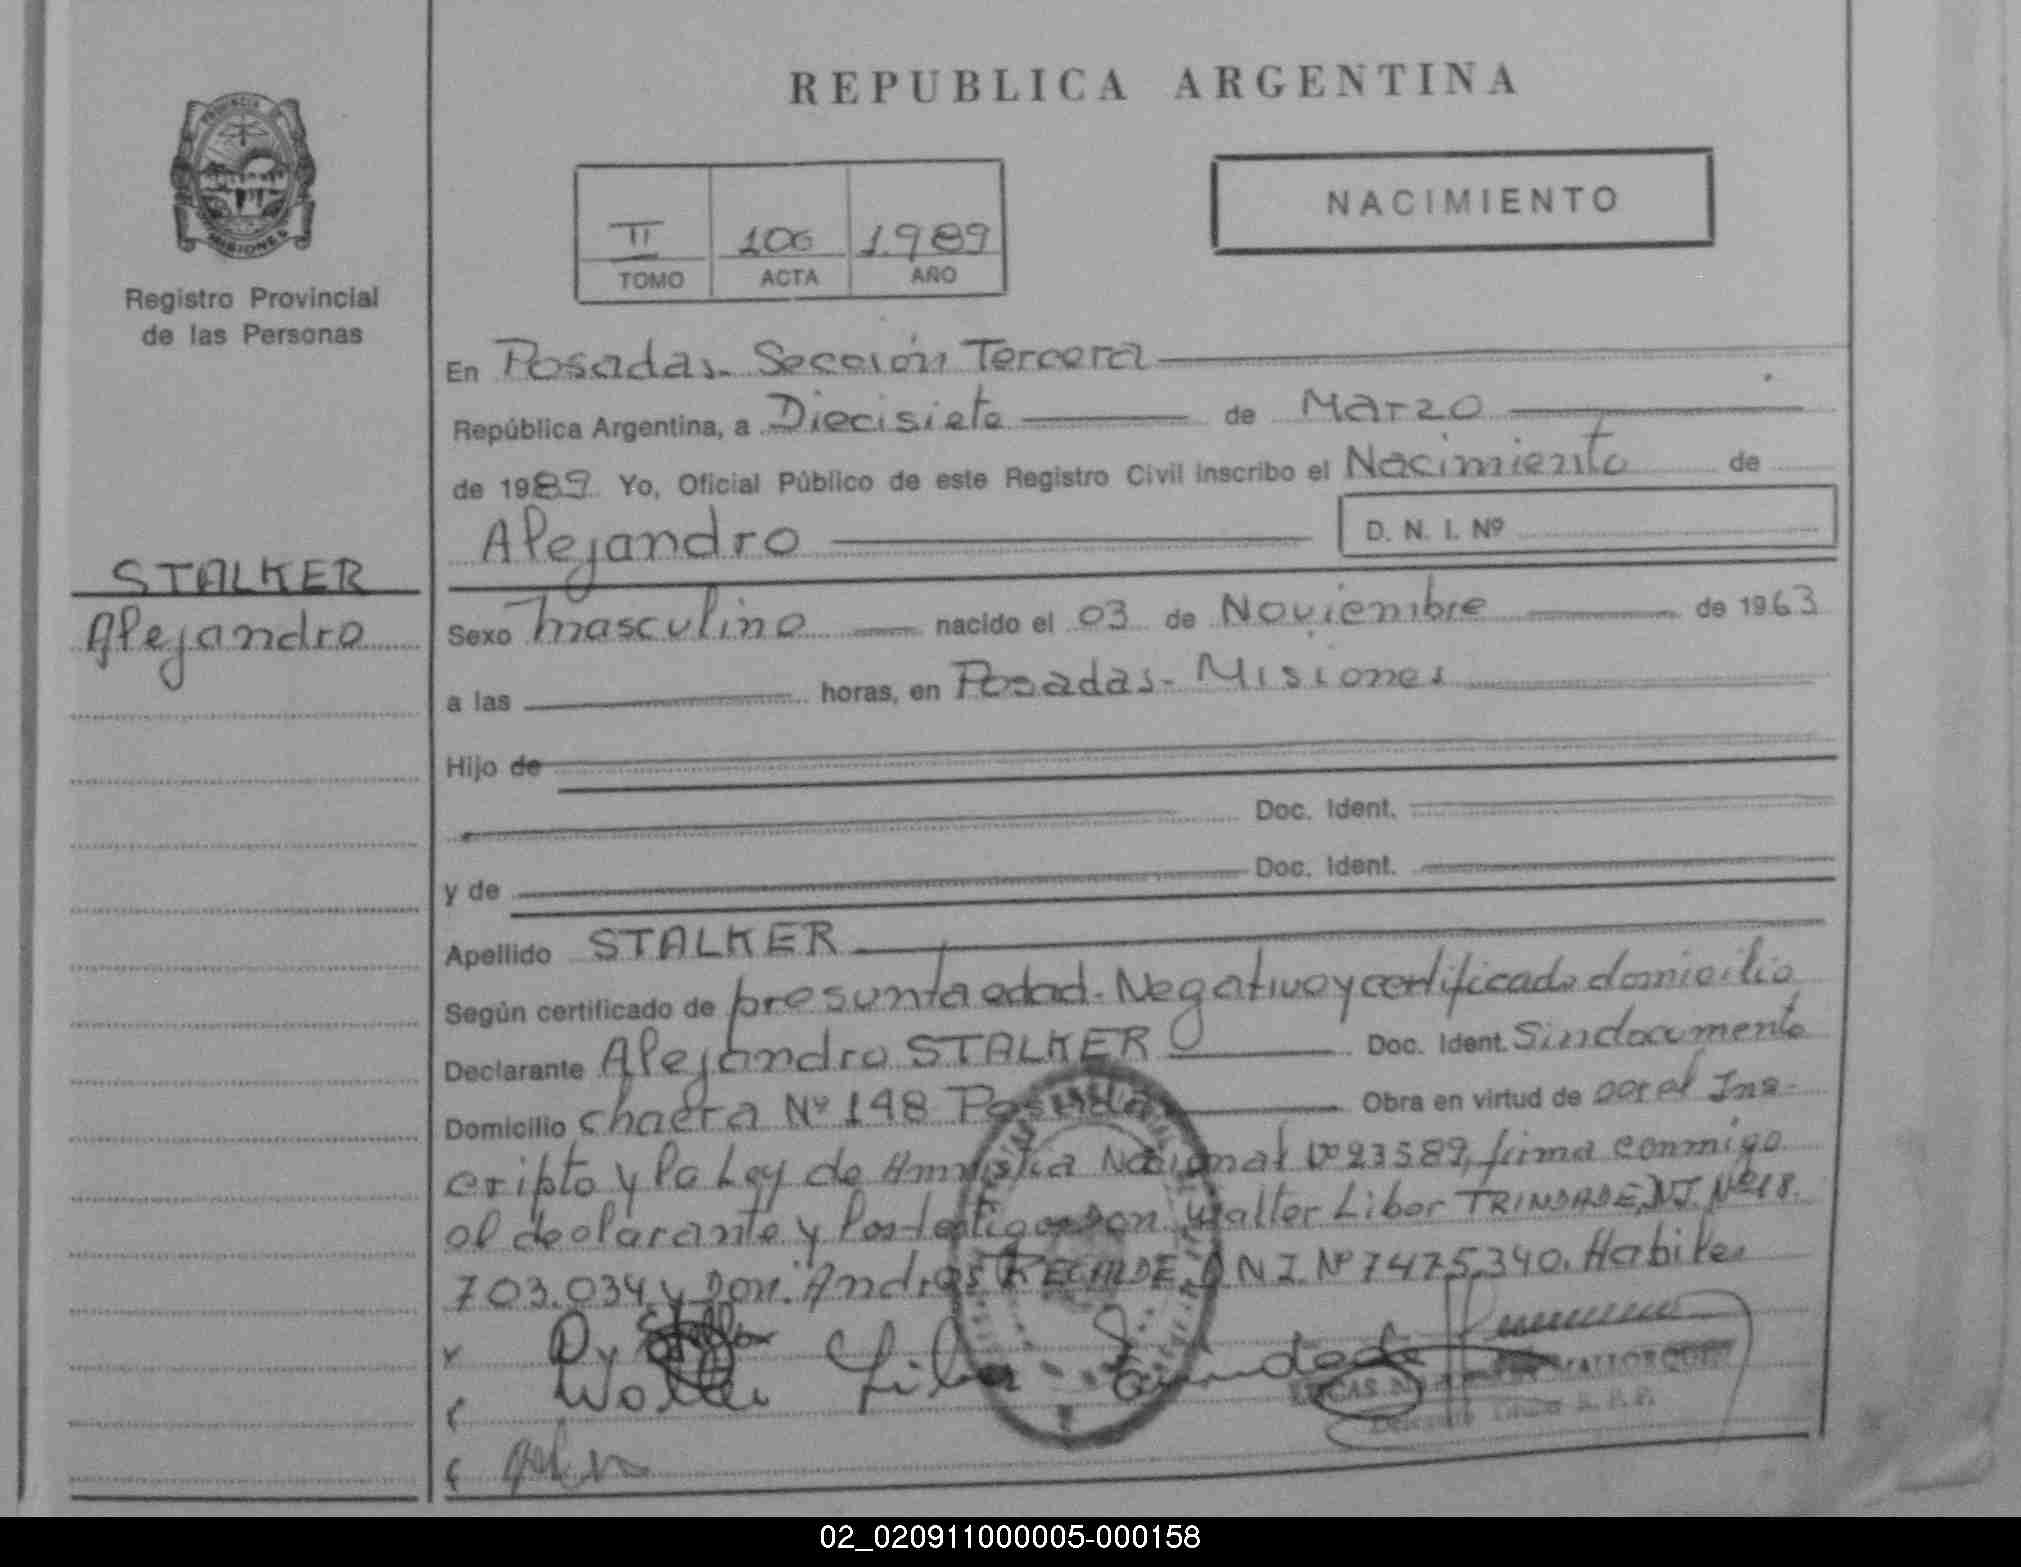 PROVINCIA
MISIONES
Registro Provincial
de las Personas
STALKER
Alejandro
REPUBLICA ARGENTINA
II 106 1.989
TOMO ACTA AÑO
NACIMIENTO
En Posadas - Sección Tercera
República Argentina, a Diecisiete de Marzo
de 1989 Yo, Oficial Público de este Registro Civil inscribo el Nacimiento de
Alejandro D. N. I. Nº
Sexo masculino nacido el 03 de Noviembre de 1963
a las horas, en Posadas - Misiones
Hijo de
Doc. Ident.
y de Doc. Ident.
Apellido STALKER
Según certificado de presunta edad - Negativo y certificado domicilio
Declarante Alejandro STALKER Doc. Ident. Sin documento
Domicilio chacra Nº 148 Posadas Obra en virtud de ser el Ins-
cripto y la Ley de Amnistia Nacional Nº 23582, firma conmigo
el declarante y los testigos Don Walter Libor TRINDADE, D.N.I. Nº 18.
703.034 y Don: Andres RECALDE, D.N.I. Nº 7475.340. Habiles
Walter Libor Trindade
LUCAS MALLORQUIN
02_020911000005-000158